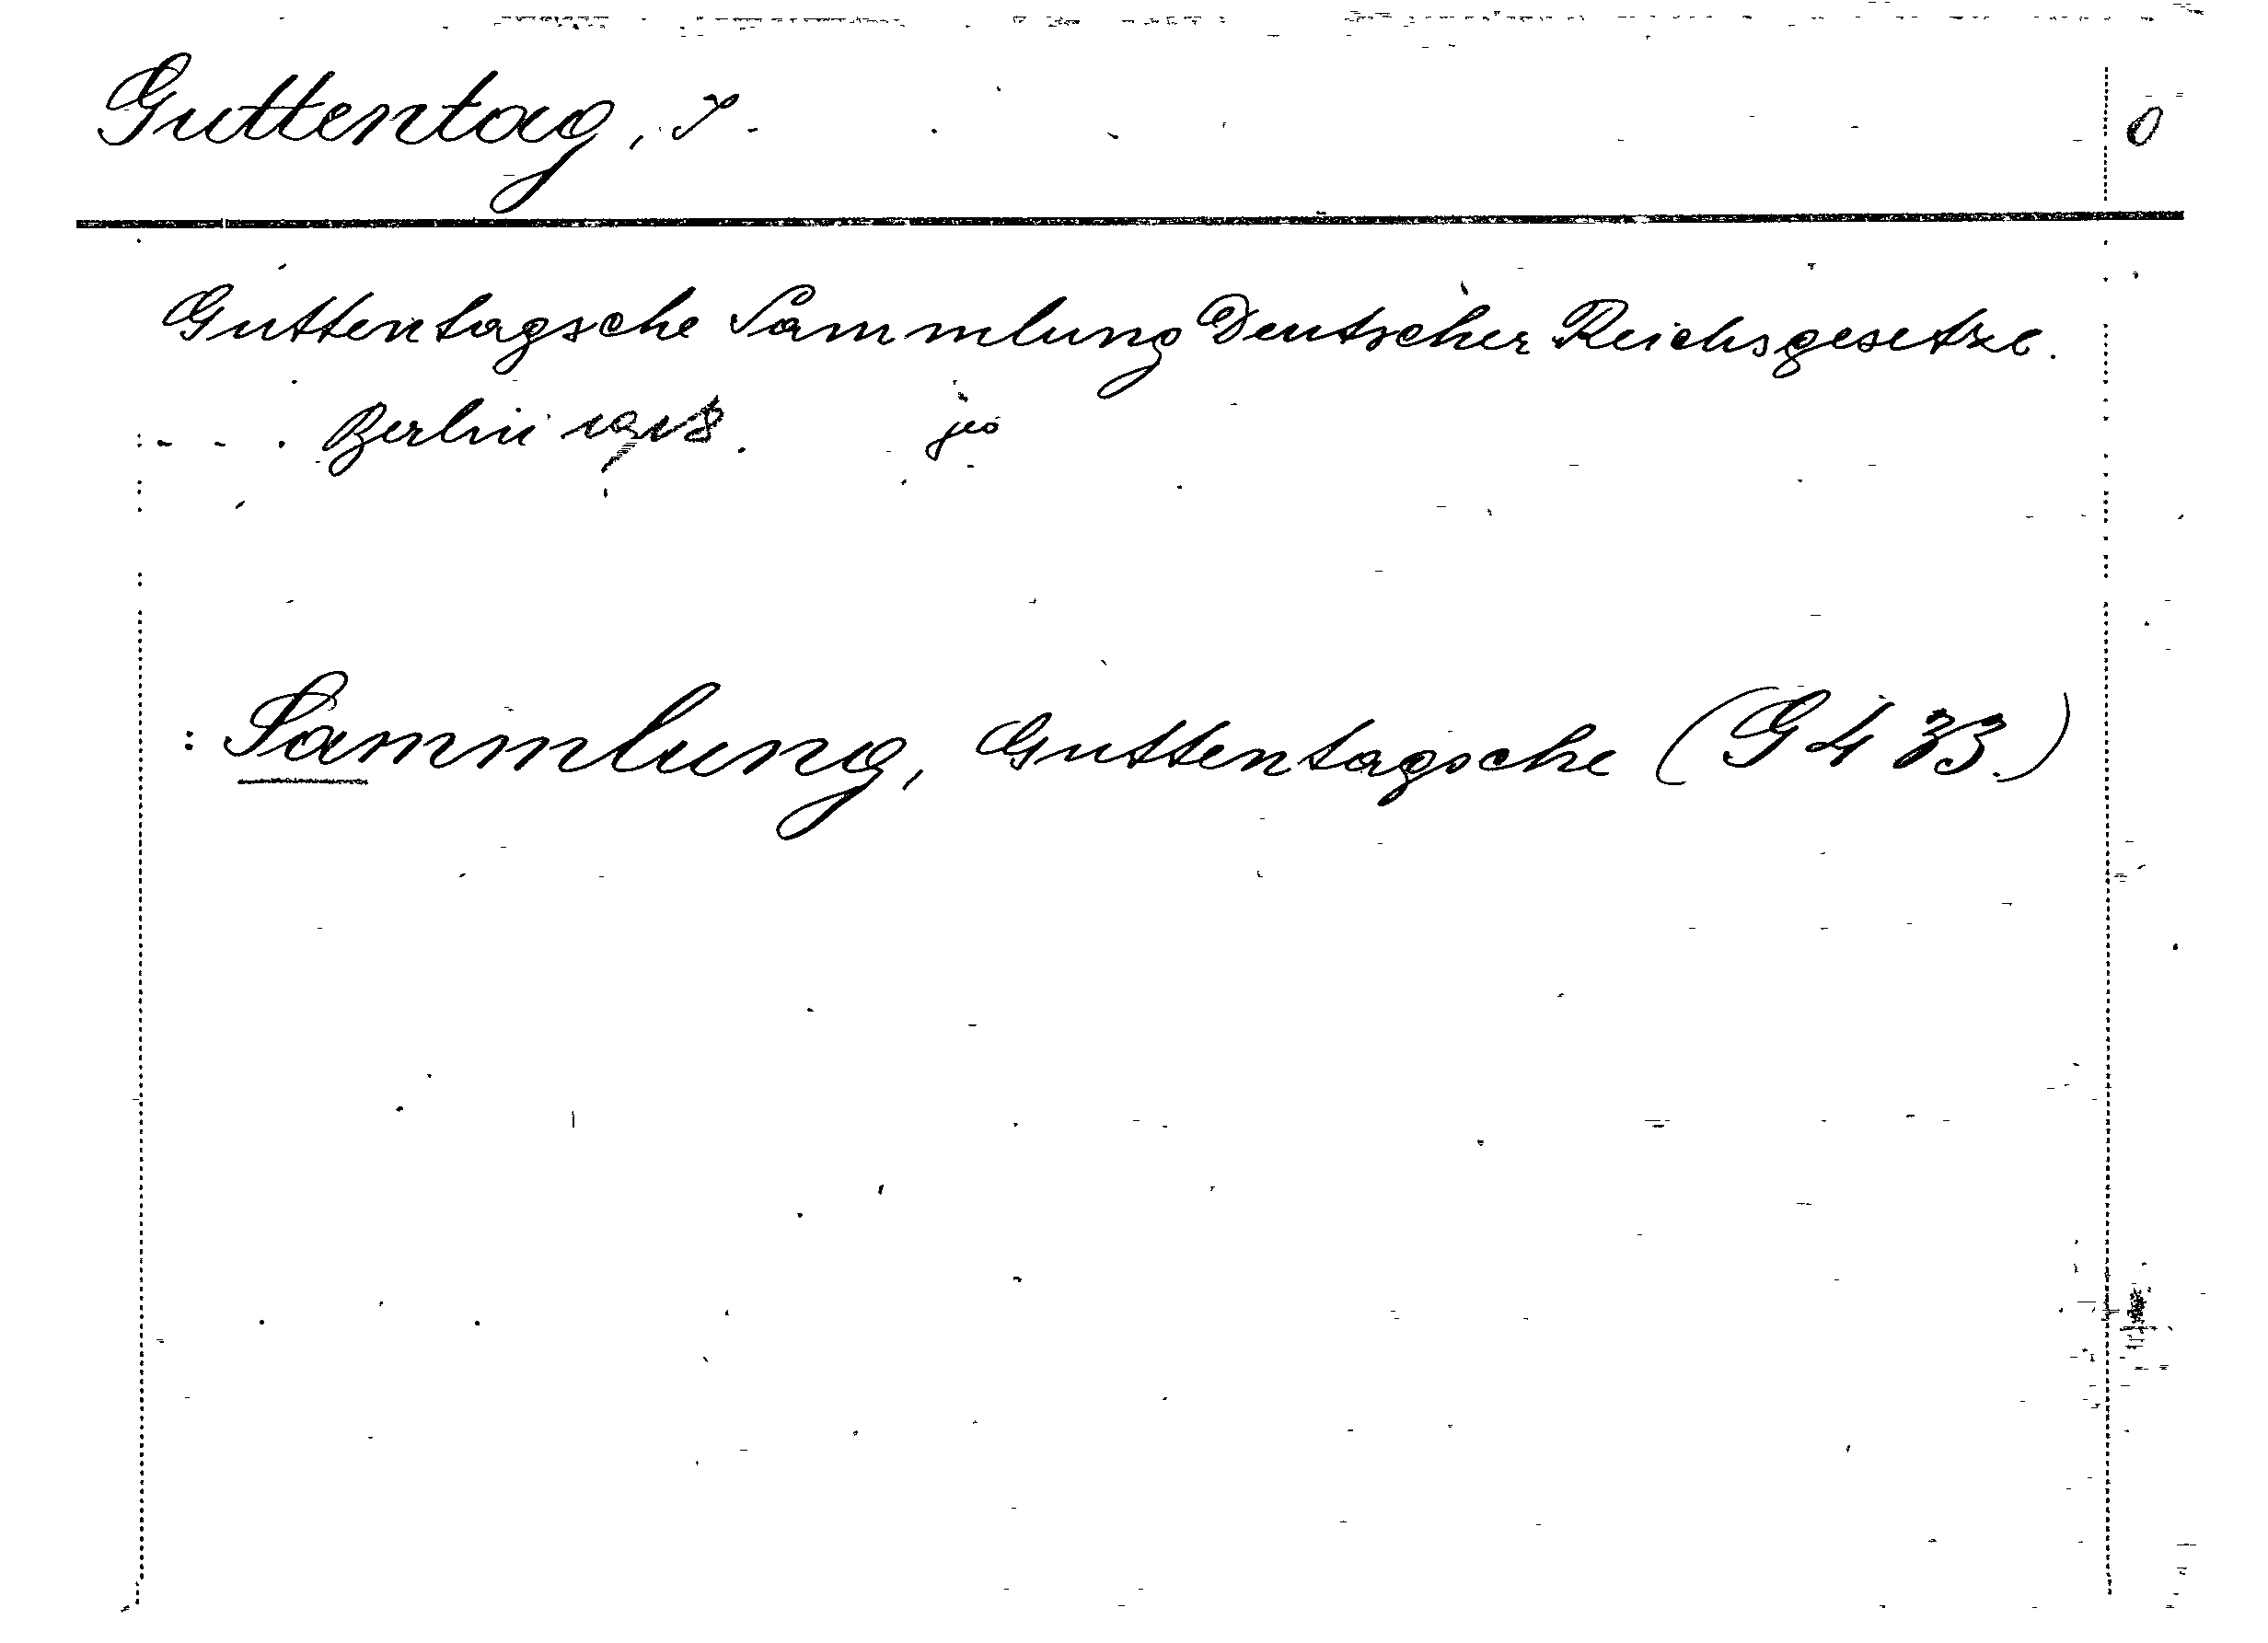 Guttentag, J. 0
Guttentagsche Sammlung Deutscher Reichsgesetze.
Berlin 1918.
: Sammlung, Guttentagsche (G 4 33.)